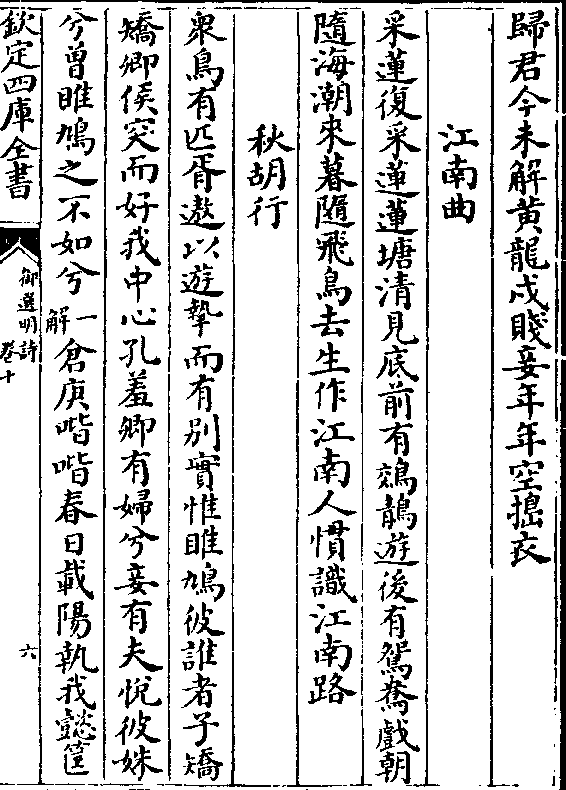 歸君今未解黄龍戍賤妾年年空擣衣
江南曲
采蓮復采蓮蓮塘清見底前有鵁鶄遊後有鴛鴦戲朝
隨海潮來暮隨飛鳥去生作江南人慣識江南路
秋胡行
衆鳥有匹胥遨以遊摯而有别實惟雎鳩彼誰者子矯
矯卿俟突而好我中心孔羞卿有婦兮妾有夫恱彼姝
兮曽雎鳩之不如兮一解倉庚喈喈春日載陽執我懿筐
欽定四庫全書
御選明詩
卷十
六